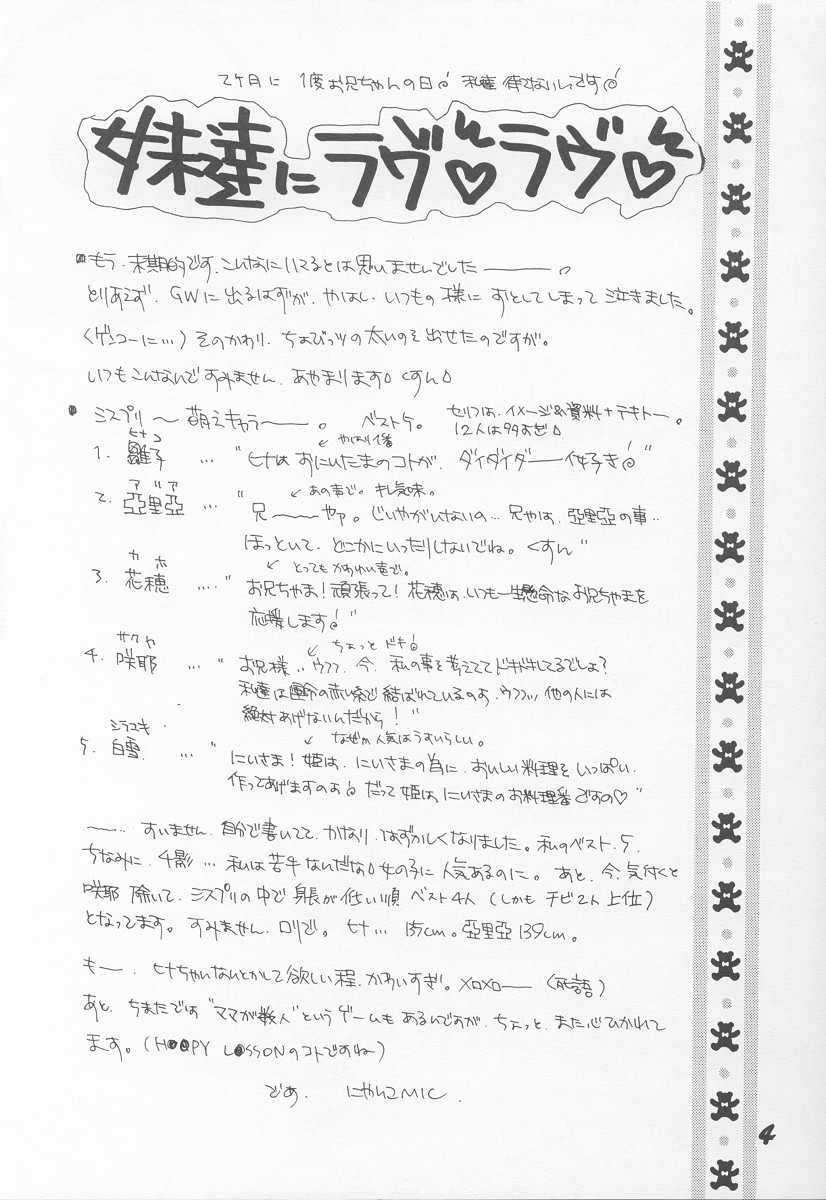 2ヶ月に 1度お兄ちゃんの日 私達 待てないんです
妹達にラヴ♡ラヴ♡
もう、末期的です。こんなににてるとは思いませんでした———。
とりあえず、GWに出るはずが、やはし、いつもの様に ずとしてしまって 泣きました。
(ゲンコーに…) そのかわり、ちょびっツの太いのを出せたのですが。
いつもこんなんですみません、あやまります。くすん。
ミスプリ 〜 萌えキャラ———。 ベスト5。 セリフは、イメージ&資料+テキトー。
12人は多すぎ。
やはり1番
ヒナコ
1. 雛子 … "ヒナは おにいたまのコトが、ダイダイダーイ好き"
あの声で。キレ気味。
アリア
2. 亞里亞 … "兄———やァ。じいやがいないの… 兄やは、亞里亞の事‥
ほっといて、どこかにいったりしないでね。くすん"
とってもかわいい声で。
カホ
3. 花穂 …. "お兄ちゃま!頑張って!花穂は、いつも一生懸命なお兄ちゃまを
応援します"
ちょっと ドキ
サクヤ
4. 咲耶 … "お兄様‥ウフフ、今、私の事を考えててドキドキしてるでしょ?
私達は運命の赤い糸で 結ばれているのよ、ウフフッ 他の人には
絶対あげないんだから!"
なぜか人気はうすいらしい。
シラユキ
5. 白雪 … "にいさま!姫は、にいさまの為に、おいしい料理を いっぱい、
作ってあげますのよ だって姫は、にいさまのお料理番ですの♡"
〜… すいません、自分で書いてて、かなり、はずかしくなりました。私のベスト、5。
ちなみに、千影… 私は苦手なんだな。女の子に 人気あるのに。 あと、今、気付くと
咲耶 除いて、ミスプリの中で 身長が低い順 ベスト4人 (しかも チビ2人 上位)
となってます。すみません、ロリで。ヒナ… 135cm。亞里亞 139cm。
もー、ヒナちゃんなんとかして欲しい程、かわいすぎ。メロメロ— (死語)
あと、ちまたでは "ママが数人" というゲームもあるんですが、ちょっと、また心ひかれて
ます。(H●●PY L●SSONのコトですね)
でわ、 にゃんこMIC.
4